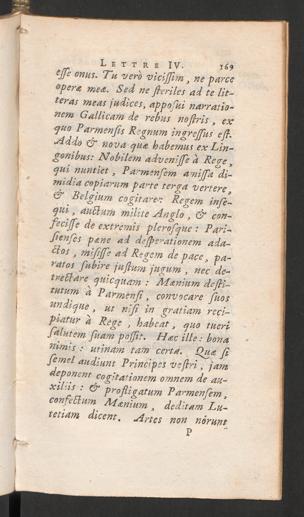 LETTRE IV. 169
esse onus. Tu verò vicissim, ne parce
operæ meæ. Sed ne steriles ad te lit-
teras meas judices, apposui narratio-
nem Gallicam de rebus nostris, ex
quo Parmensis Regnum ingressus est.
Addo & nova quæ habemus ex Lin-
gonibus: Nobilem advenisse à Rege,
qui nuntiet, Parmensem amissa di-
midia copiarum parte terga vertere,
& Belgium cogitare: Regem inse-
qui, auctum milite Anglo, & con-
fecisse de extremis plerosque: Pari-
sienses pæne ad desperationem ada-
ctos, misisse ad Regem de pace, pa-
ratos subire justum jugum, nec de-
trectare quicquam: Mænium desti-
tutum à Parmensi, convocare suos
undique, ut nisi in gratiam reci-
piatur à Rege, habeat, quo tueri
salutem suam possit. Hæc ille: bona
nimis: utinam tam certa. Quæ si
semel audiunt Principes vestri, jam
deponent cogitationem omnem de au-
xiliis: & profligatum Parmensem,
confectum Mænium, deditam Lu-
tetiam dicent. Artes non nôrunt
P